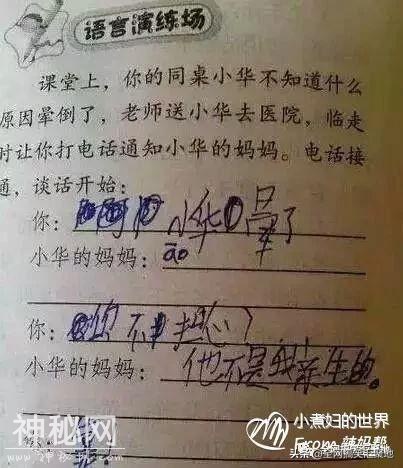 语言演练场
课堂上，你的同桌小华不知道什么
原因晕倒了，老师送小华去医院，临走
时让你打电话通知小华的妈妈。电话接
通，谈话开始：
你：小华晕了
小华的妈妈：āo
你：你不担心？
小华的妈妈：他不是我亲生的。
神秘网
小煮妇的世界